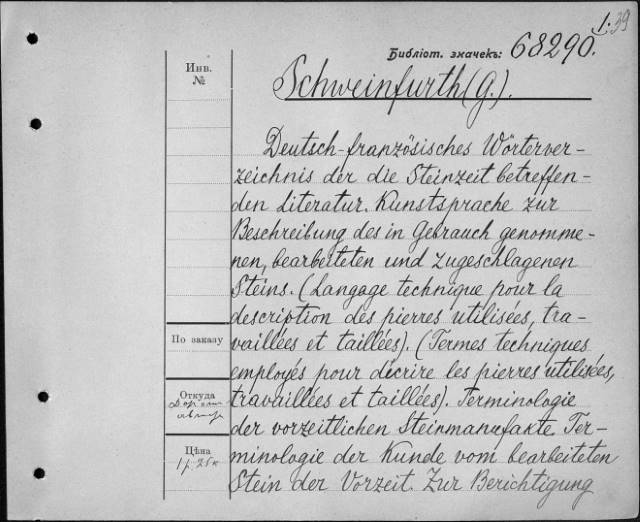 1.39
Библіот. значекъ: 68290.
Инв.
№
Schweinfurth (G.).
Deutsch-französisches Wörterver-
zeichnis der die Steinzeit betreffen-
den Literatur. Kunstsprache zur
Beschreibung des in Gebrauch genomme-
nen, bearbeiteten und zugeschlagenen
Steins. (Langage technique pour la
description des pierres utilisées, tra-
vaillées et taillées). (Termes techniques
employés pour décrire les pierres utilisées,
travaillées et taillées). Terminologie
der vorzeitlichen Steinmanufakte. Ter-
minologie der Kunde vom bearbeiteten
Stein der Vorzeit. Zur Berichtigung
По заказу
Откуда
Цѣна
1 р. 25 к